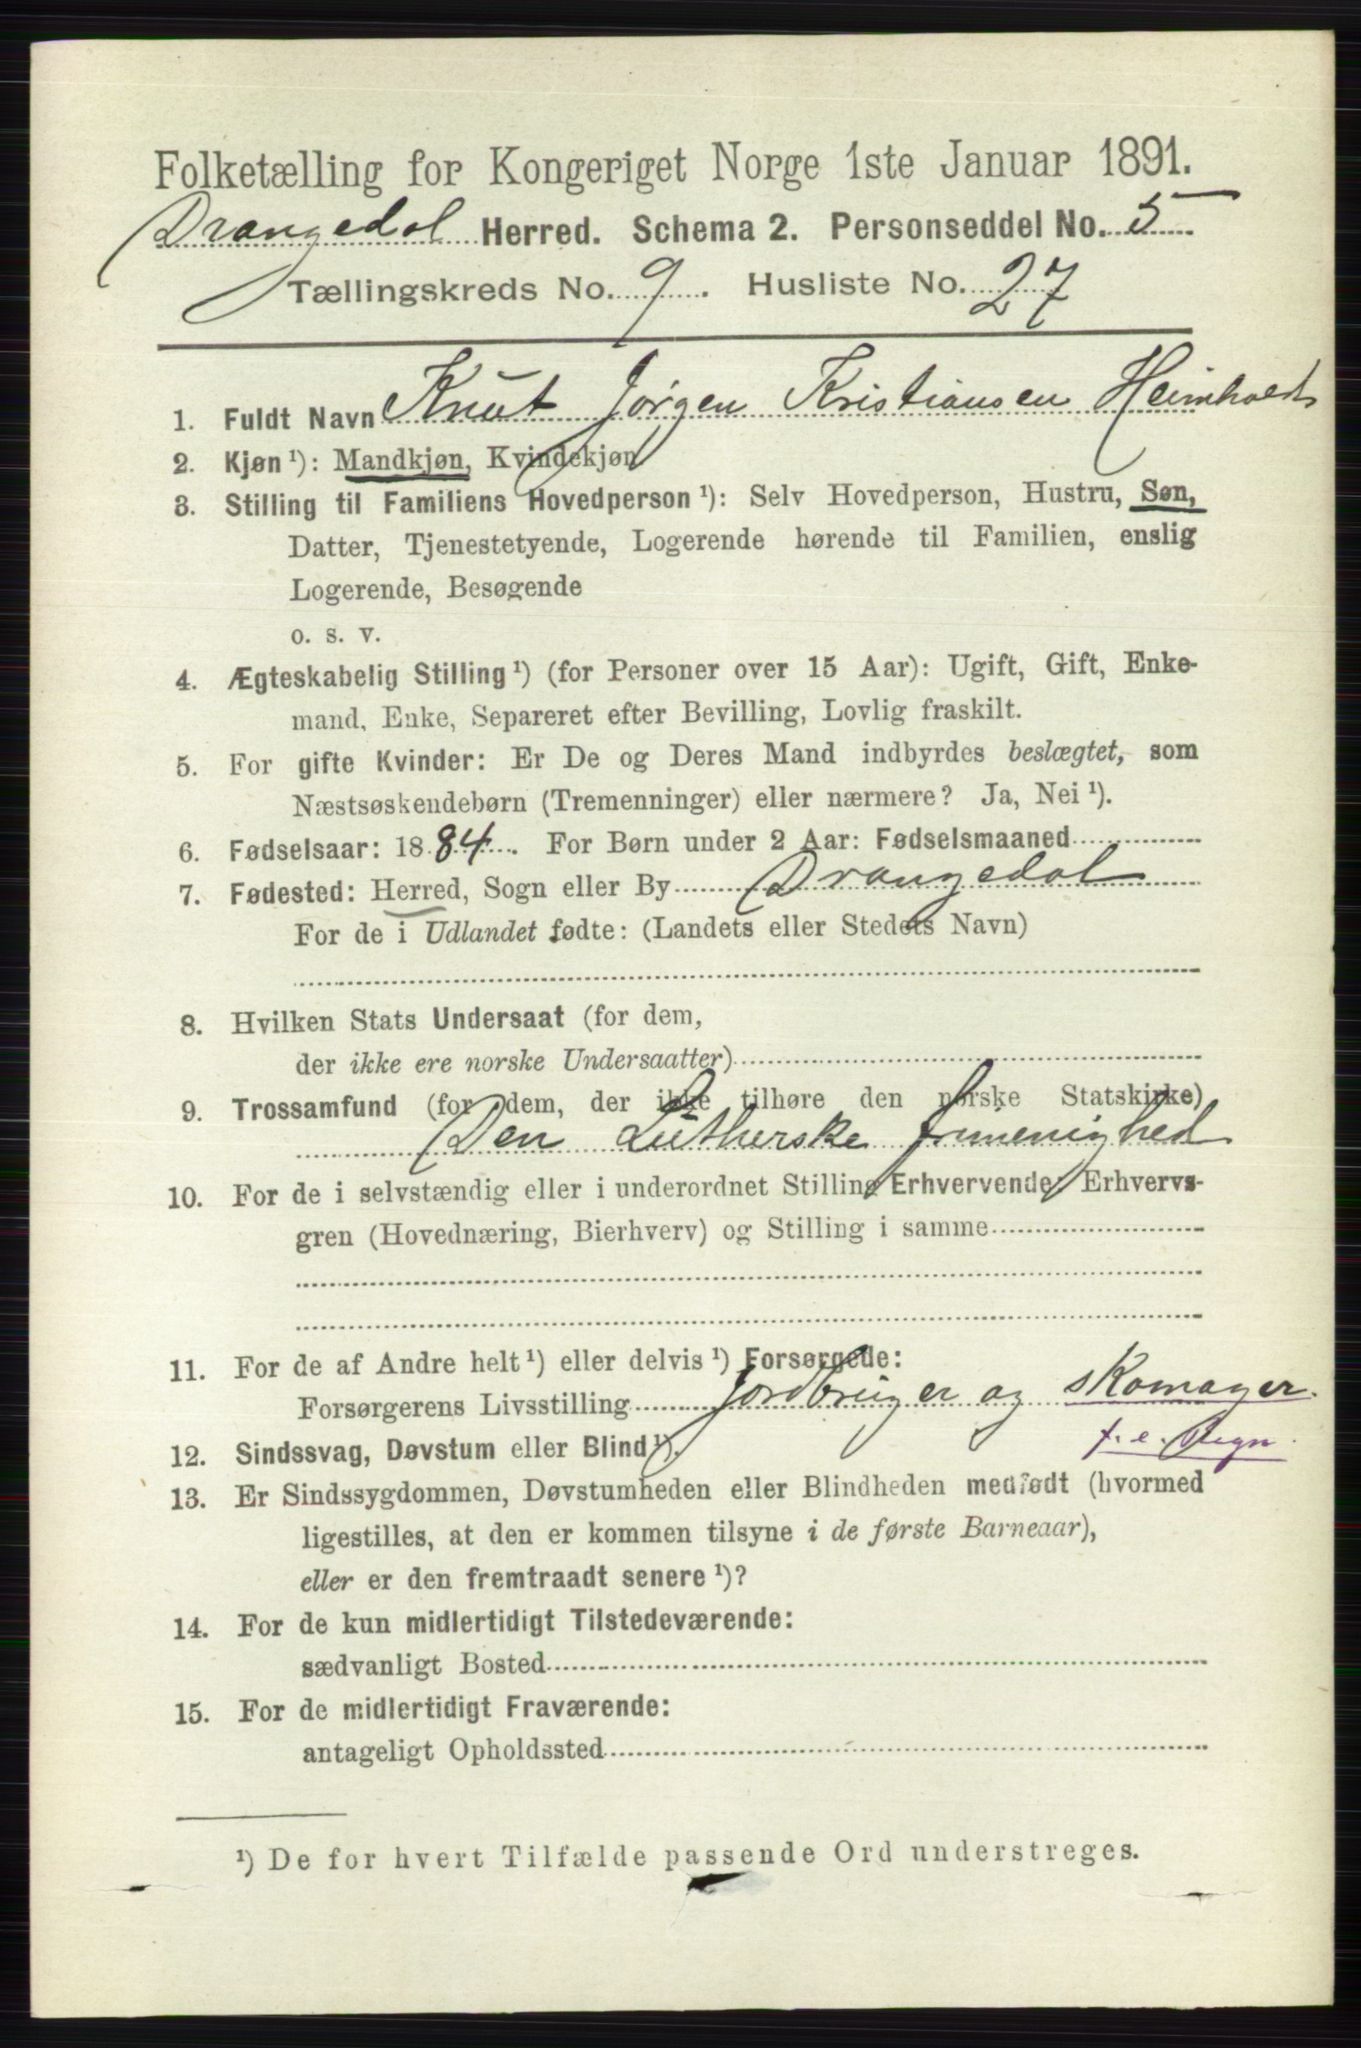 Folketælling for Kongeriget Norge 1ste Januar 1891.
Drangedal Herred. Schema 2. Personseddel No. 5
Tællingskreds No. 9. Husliste No. 27
1. Fuldt Navn Knut Jørgen Kristiansen Heimholdt
2. Kjøn ¹): Mandkjøn, Kvindekjøn
3. Stilling til Familiens Hovedperson ¹): Selv Hovedperson, Hustru, Søn,
Datter, Tjenestetyende, Logerende hørende til Familien, enslig
Logerende, Besøgende
o. s. v.
4. Ægteskabelig Stilling ¹) (for Personer over 15 Aar): Ugift, Gift, Enke-
mand, Enke, Separeret efter Bevilling, Lovlig fraskilt.
5. For gifte Kvinder: Er De og Deres Mand indbyrdes beslægtet, som
Næstsøskendebørn (Tremenninger) eller nærmere? Ja, Nei ¹).
6. Fødselsaar: 1884. For Børn under 2 Aar: Fødselsmaaned
7. Fødested: Herred, Sogn eller By Drangedal
For de i Udlandet fødte: (Landets eller Stedets Navn)
8. Hvilken Stats Undersaat (for dem,
der ikke ere norske Undersaatter)
9. Trossamfund (for dem, der ikke tilhøre den norske Statskirke)
Den Lutherske frimenighed
10. For de i selvstændig eller i underordnet Stilling Erhvervende: Erhvervs-
gren (Hovednæring, Bierhverv) og Stilling i samme
11. For de af Andre helt ¹) eller delvis ¹) Forsørgede:
Forsørgerens Livsstilling Jordbruger og skomager.
f. e. Regn.
12. Sindssvag, Døvstum eller Blind ¹).
13. Er Sindssygdommen, Døvstumheden eller Blindheden medfødt (hvormed
ligestilles, at den er kommen tilsyne i de første Barneaar),
eller er den fremtraadt senere ¹)?
14. For de kun midlertidigt Tilstedeværende:
sædvanligt Bosted
15. For de midlertidigt Fraværende:
antageligt Opholdssted
¹) De for hvert Tilfælde passende Ord understreges.